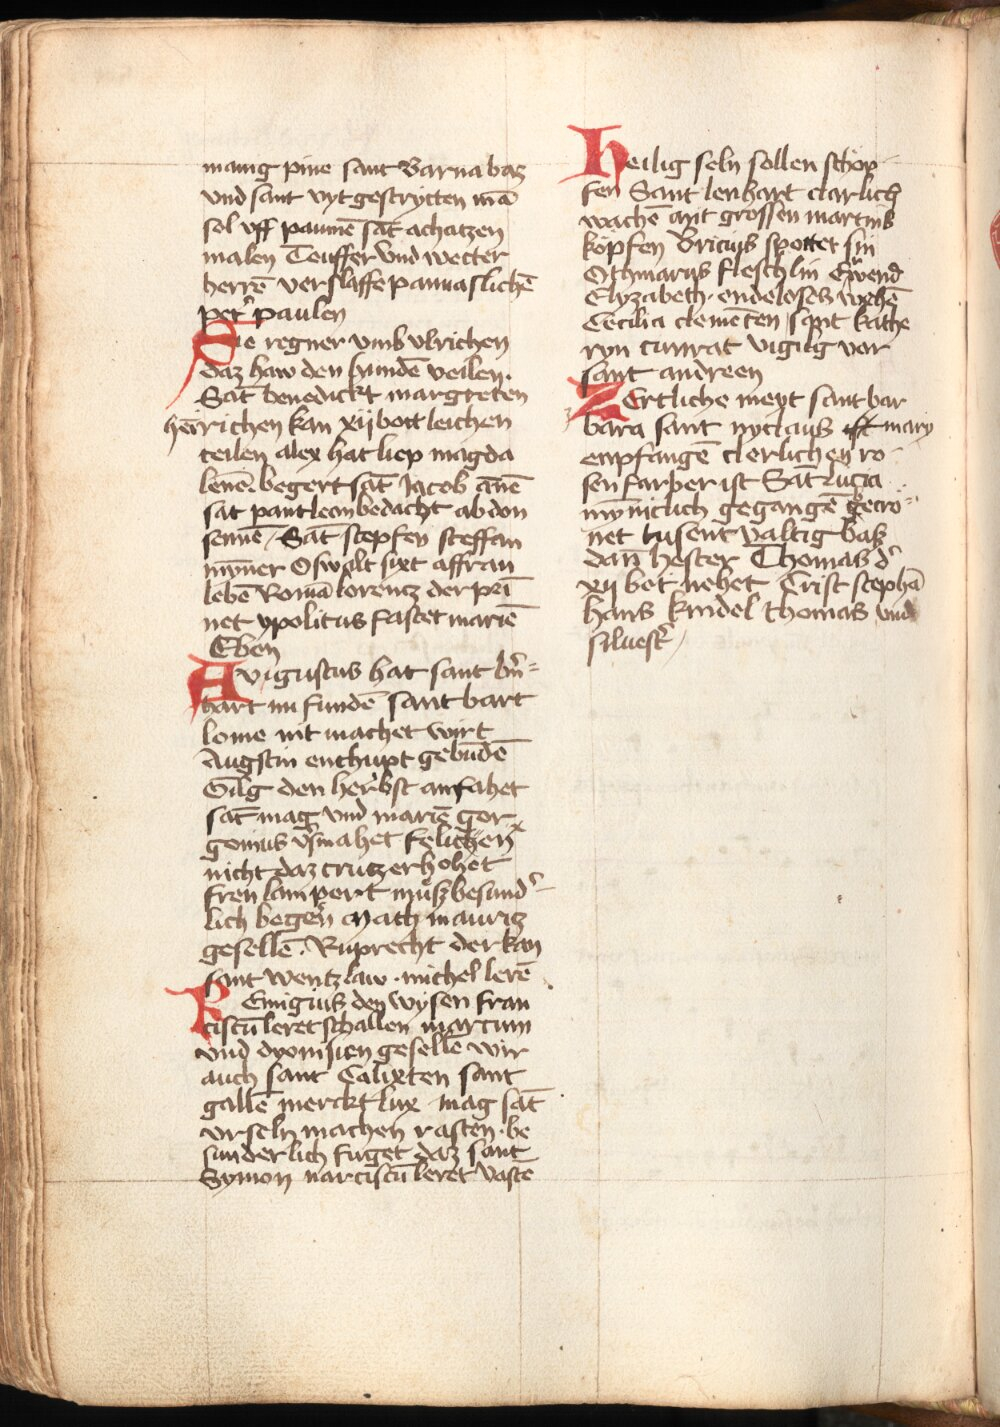 manig pine sant Barnabas
vnd sant vyt gestrytten mā
sol vff paumē sāt achatzen
malen Teuffer vnd wetter
herrē verslaffe pamaslichē
pet͛ paulen
Die regner vmb vlrichen
daz haw den hundē veilen.
Sāt benedickt margreten
heinrichen kan xij bott leichen
teilen alex hat liep magda
lenē. begert sāt Jacob ānē
sāt pantleon bedacht abdon
sennē / Sāt stepfen steffan
mynner Oswalt sixt affran
lebē Romā lorentz der pri
net ypolitus fastet mariē
Eben
Avigustus hat sant bn͛=
hart im fundē sant bart
lome nit machet wirt
Augstin enthupt gebūdē
Gilg den herbst anfahet
sāt mag vnd mariē gor
gonius v͛smahet felichen
nicht daz crutz erhohet
fren lampert muͦsz besund͛
lich begen Math mauritz
gesellē. Ruprecht der kan
sant wentzlaw . michel lerē
Remigius den wysen fran
ciscū leret schallen martum
vnd dyonisien gesellē wir
auch sant Calixten sant
gallē merckt lux mag sāt
vrseln machen rasten . be
sunderlich fuget daz sant
Symon narciscū leret vaste
Heilig seln sollen schöp
fen Sant lenhart clarlich
wachē mit grossen martins
köpfen Bricius spottet sin
Othmarus fleschlin Ewend
Elyzabeth . endeloses wehē
Cecilia clemēten sant kathe
ryn cunrat vigilg vor
sant andreen
Zertliche meyt sant bar
bara sant nyclaus ist mary
enpfangē clerlichen ro
sen farber ist Sāt lucia
mynniclich gegangē gecro=
net tusent valtig basz
dan̄ hester Thomas d͛
xij bot nehet Crist stephā
hans kindel thomas vnd
siluest͛ /